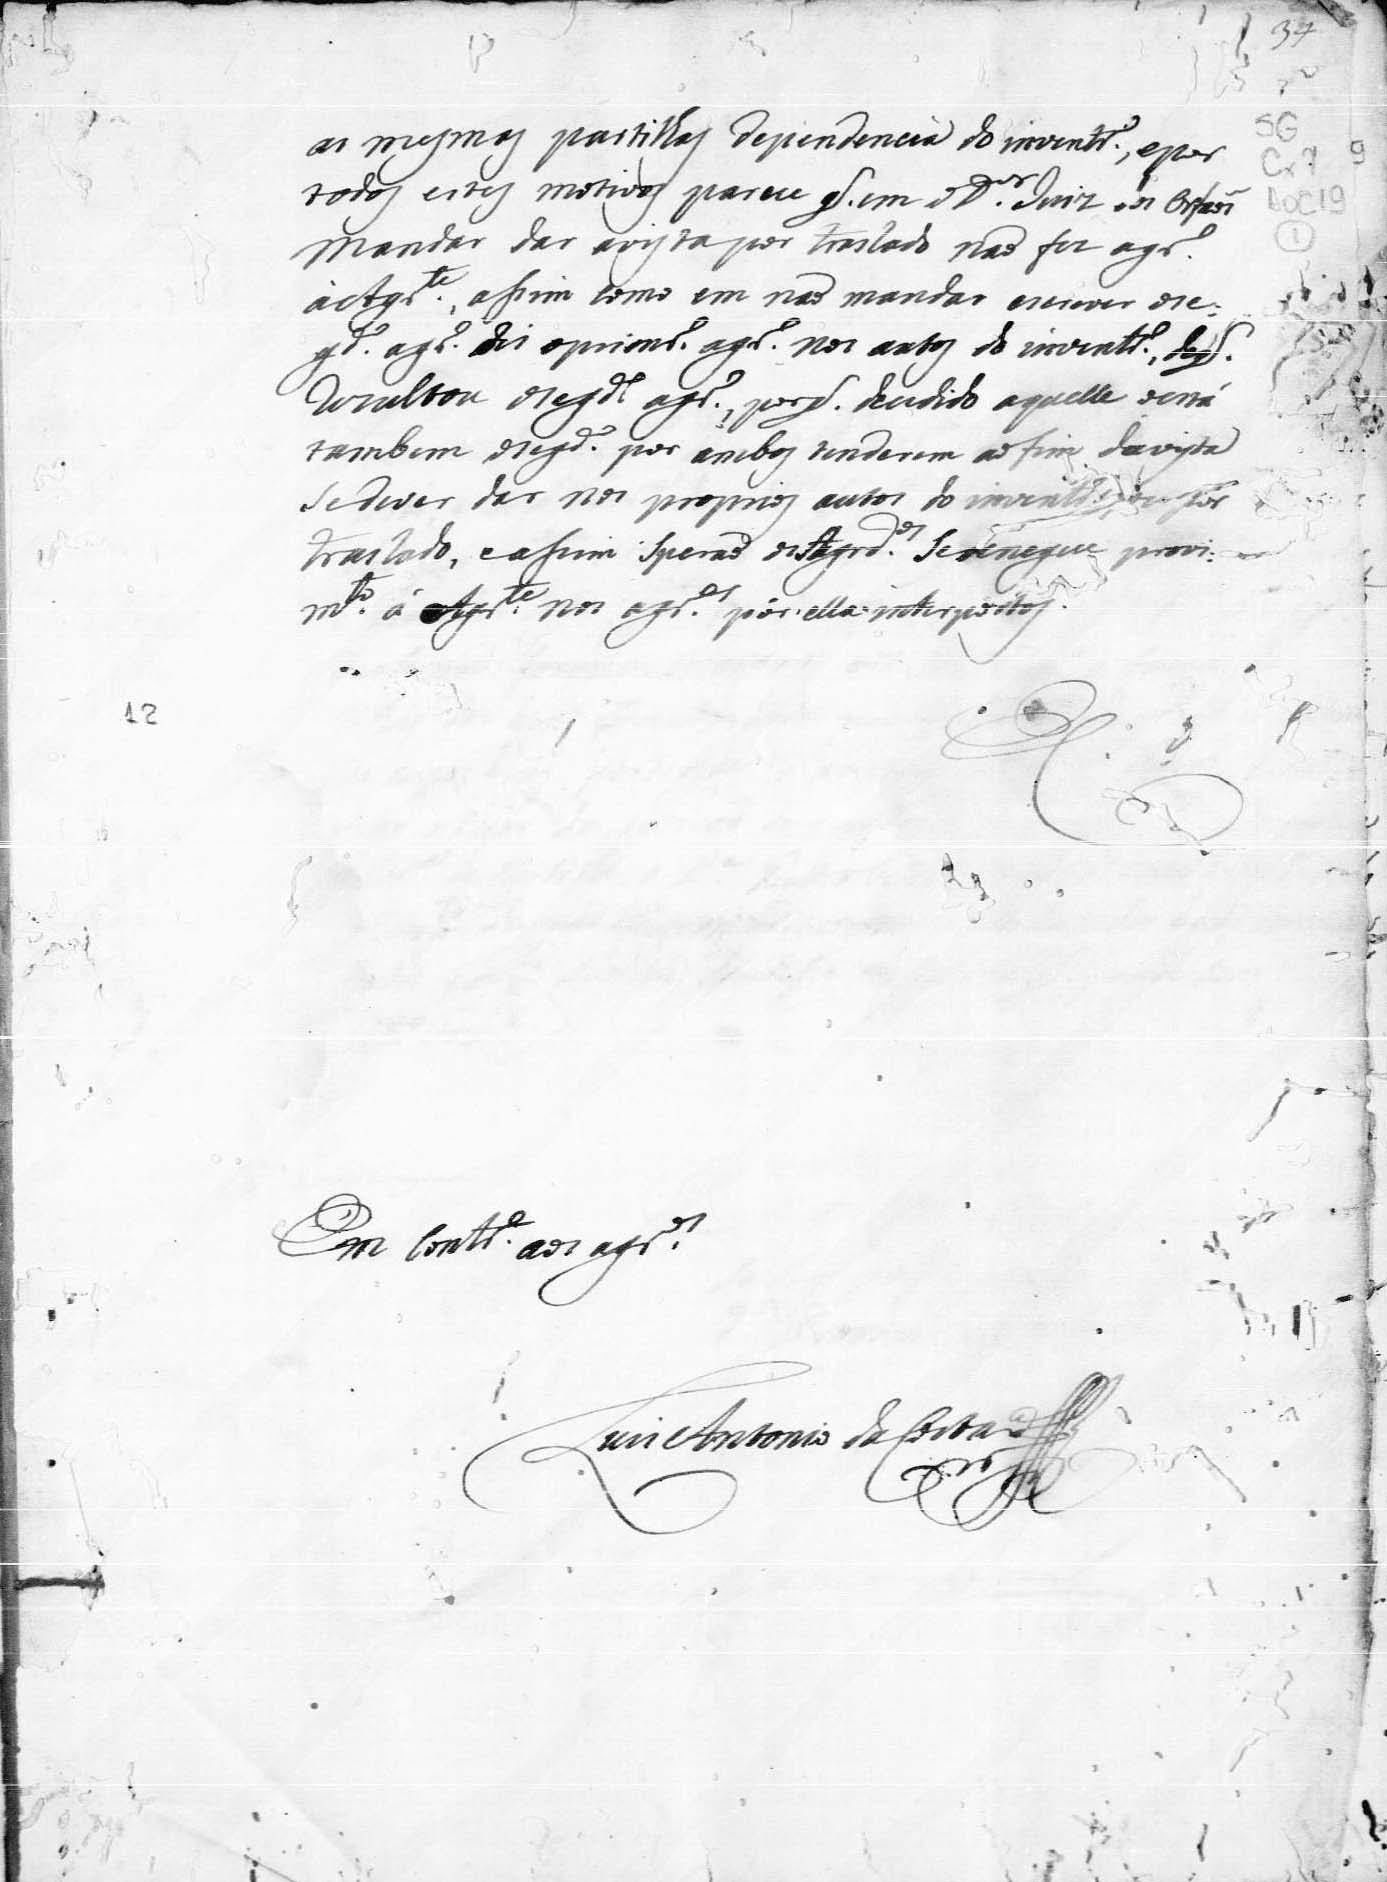 37
SG
Cx 7 9
Doc 19
1
as mesmas partilhas dependencia do inventr.º, e por
todos estes motivos parece q̃. em o D.or Juiz dos Orfaos
mandar dar avista por traslado naõ fez agr.º
à Agr.te, assim como em naõ mandar escrever ose-
gd.º agr.º do oprimr.º agr.º nos autos do inventr.º, deq̃.
rezultou osegd.º agr.º, porq̃. decidido aquelle está
tambem osegd.º por ambos tenderem ao fim davista
sedever dar nos proprios autos do inventr.º, ou por
traslado, e assim speraõ os Agrd.os se denegue provi-
m.to á Agr.te nos agr.os por ella interpostos.
12
Em Contr.º aos agr.os
Luis Antonio da Costa